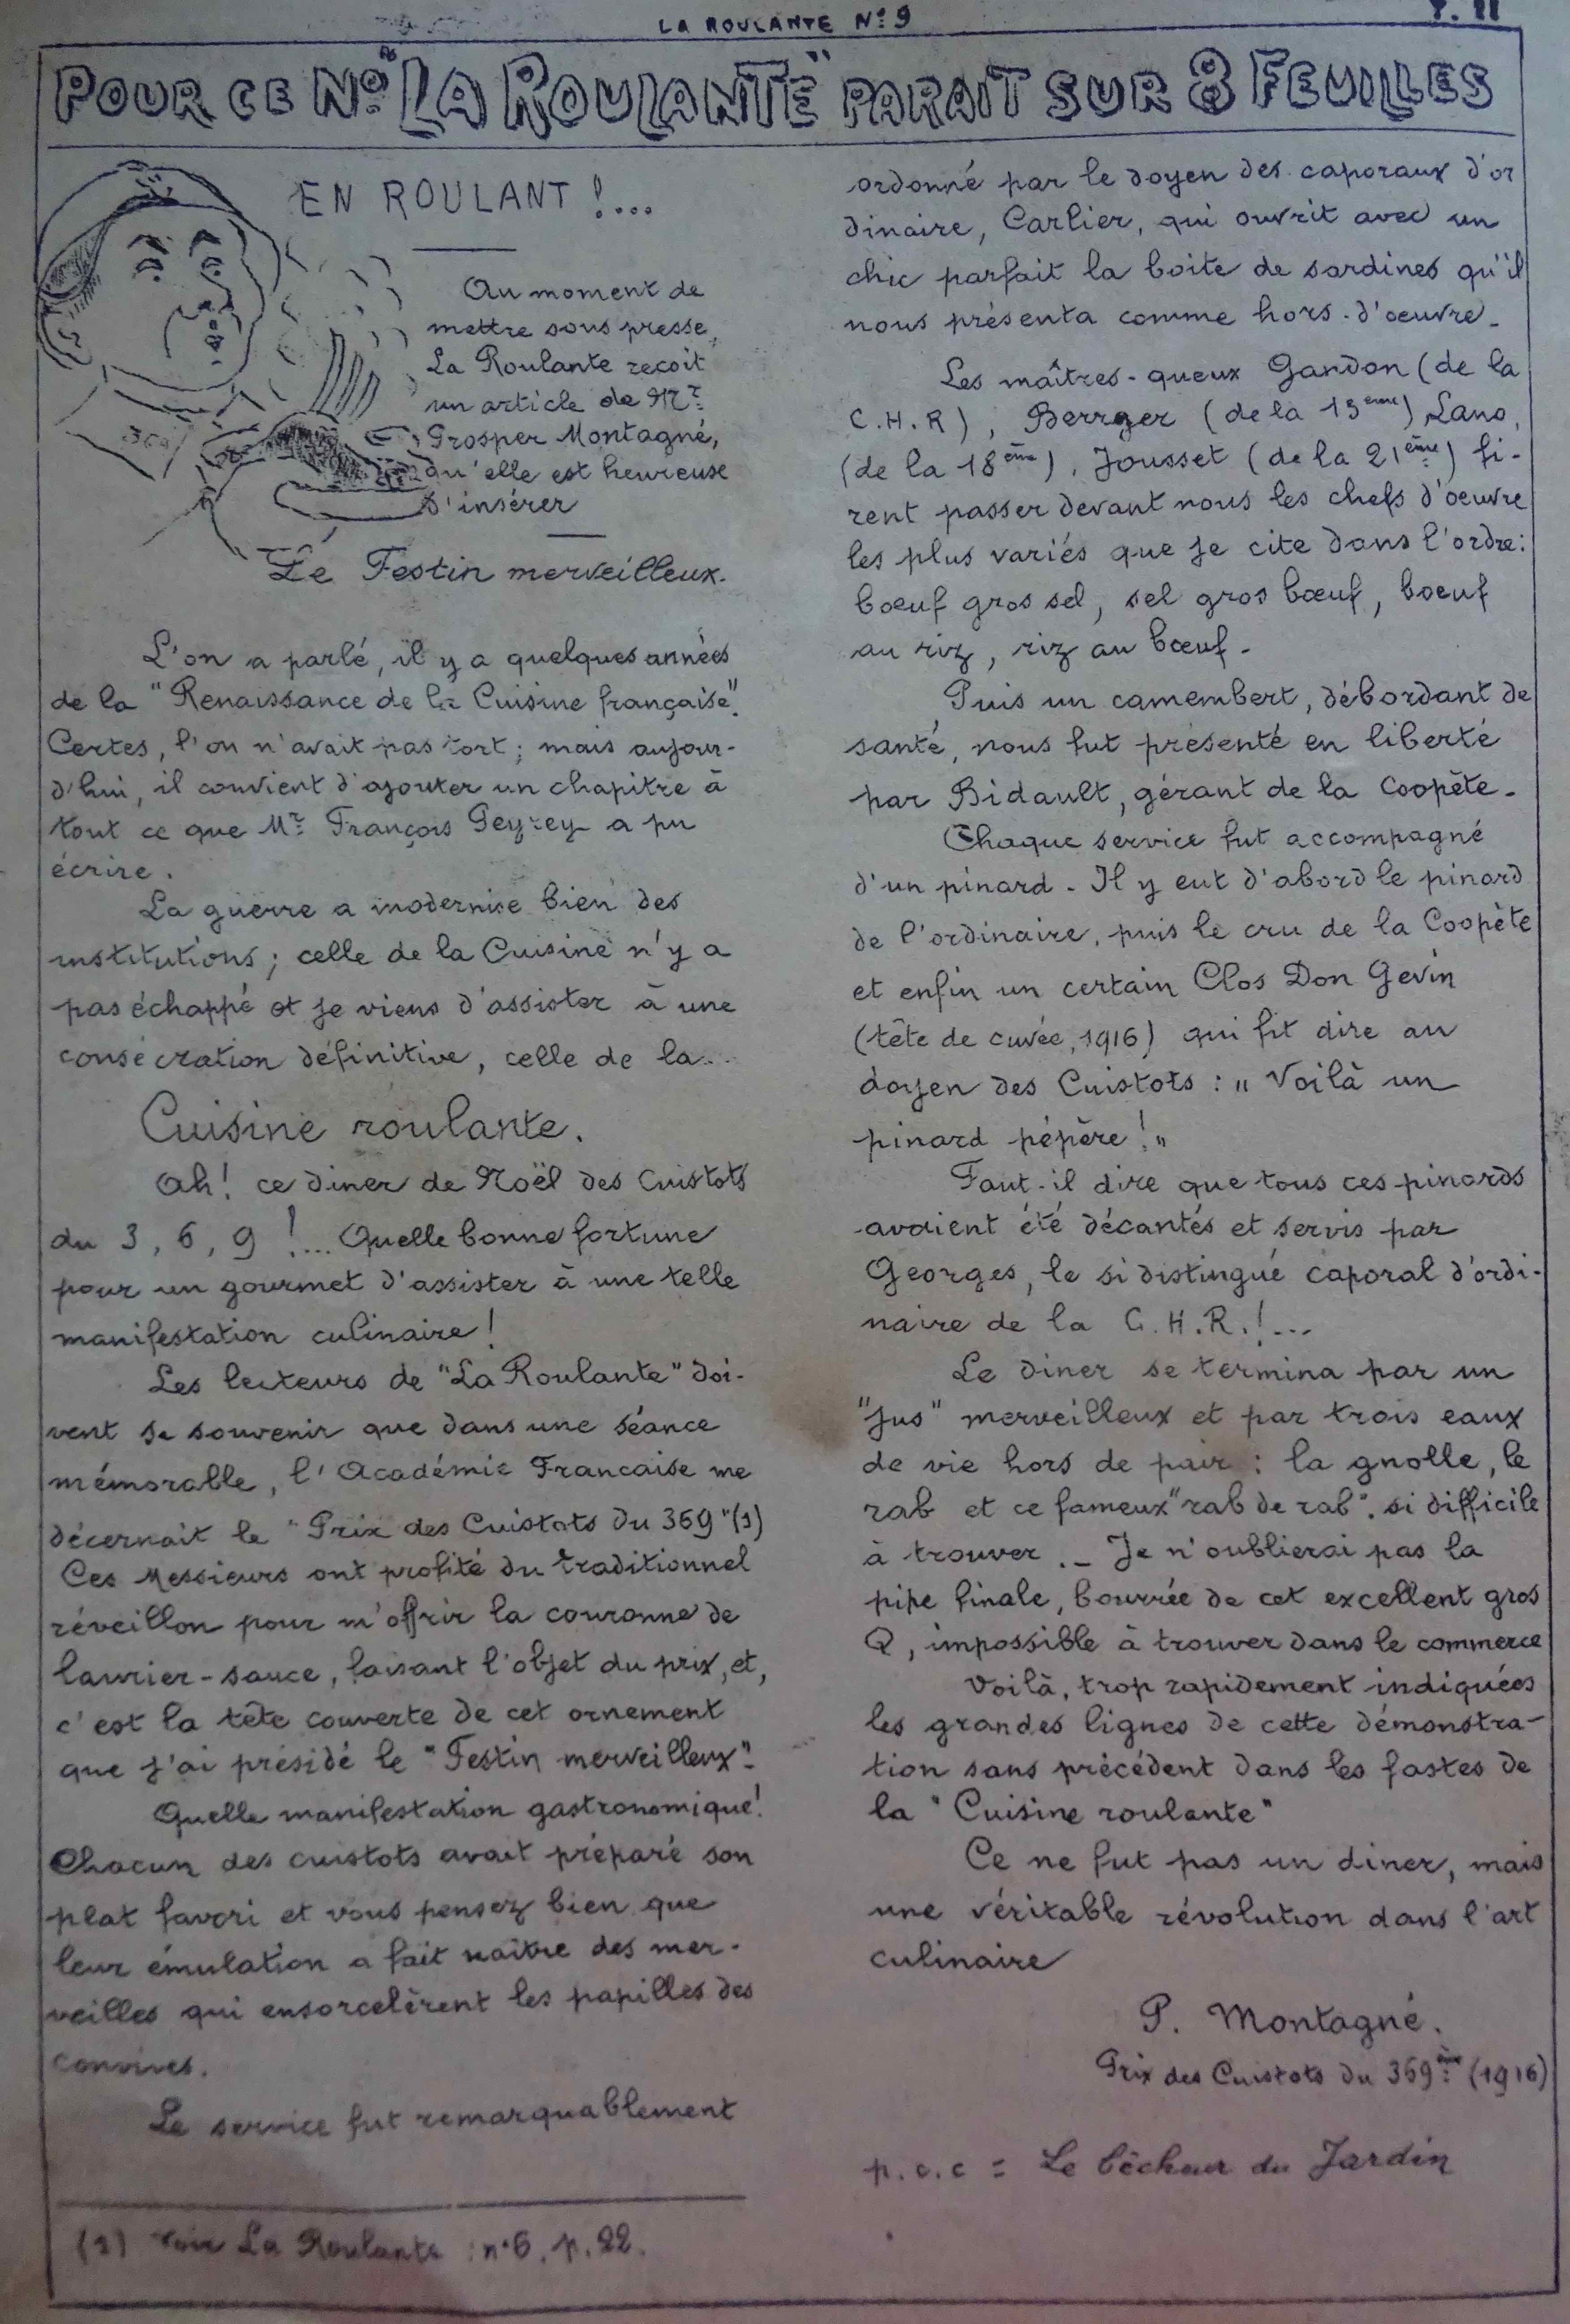 LA ROULANTE Nº 9
P. 11
POUR CE Nº "LA ROULANTE" PARAIT SUR 8 FEUILLES
EN ROULANT !...
Au moment de
mettre sous presse,
La Roulante reçoit
un article de Mr
Prosper Montagné,
qu'elle est heureuse
d'insérer
369
Le Festin merveilleux.
L'on a parlé, il y a quelques années
de la "Renaissance de la Cuisine française".
Certes, l'on n'avait pas tort ; mais aujour-
d'hui, il convient d'ajouter un chapitre à
tout ce que Mr François Peyrey a pu
écrire.
La guerre a modernise bien des
institutions ; celle de la Cuisine n'y a
pas échappé et je viens d'assister à une
consécration définitive, celle de la...
Cuisine roulante.
Ah! ce diner de Noël des Cuistots
du 3, 6, 9 !... Quelle bonne fortune
pour un gourmet d'assister à une telle
manifestation culinaire !
Les lecteurs de "La Roulante" doi-
vent se souvenir que dans une séance
mémorable, l'Académie Francaise me
décernait le "Prix des Cuistots du 369" (1)
Ces Messieurs ont profité du traditionnel
réveillon pour m'offrir la couronne de
laurier-sauce, faisant l'objet du prix, et,
c'est la tête couverte de cet ornement
que j'ai présidé le "Festin merveilleux".
Quelle manifestation gastronomique!
Chacun des cuistots avait préparé son
plat favori et vous pensez bien que
leur émulation a fait naître des mer-
veilles qui ensorcelèrent les papilles des
convives.
Le service fut remarquablement
(1) Voir La Roulante : nº 6, p. 22.
ordonné par le doyen des caporaux d'or
dinaire, Carlier, qui ouvrit avec un
chic parfait la boite de sardines qu'il
nous présenta comme hors-d'oeuvre.
Les maîtres-queux Gandon (de la
C.H.R), Berrger (de la 13ème) Lano,
(de la 18ème), Jousset (de la 21ème) fi-
rent passer devant nous les chefs d'oeuvre
les plus variés que je cite dans l'ordre:
boeuf gros sel, sel gros boeuf, boeuf
au riz, riz au boeuf.
Puis un camembert, débordant de
santé, nous fut présenté en liberté
par Bidault, gérant de la Coopète.
Chaque service fut accompagné
d'un pinard. Il y eut d'abord le pinard
de l'ordinaire, puis le cru de la Coopète
et enfin un certain Clos Don Gevin
(tête de cuvée, 1916) qui fit dire au
doyen des Cuistots : " Voilà un
pinard pépère ! "
Faut-il dire que tous ces pinards
avaient été décantés et servis par
Georges, le si distingué caporal d'ordi-
naire de la C.H.R.!...
Le diner se termina par un
"jus" merveilleux et par trois eaux
de vie hors de pair : la gnolle, le
rab et ce fameux "rab de rab". si difficile
à trouver. _ Je n'oublierai pas la
pipe finale, bourrée de cet excellent gros
Q, impossible à trouver dans le commerce
Voilà, trop rapidement indiquées
les grandes lignes de cette démonstra-
tion sans précédent dans les fastes de
la "Cuisine roulante"
Ce ne fut pas un diner, mais
une véritable révolution dans l'art
culinaire
P. Montagné.
Prix des Cuistots du 369ème (1916)
p.c.c = Le bêcheur du Jardin